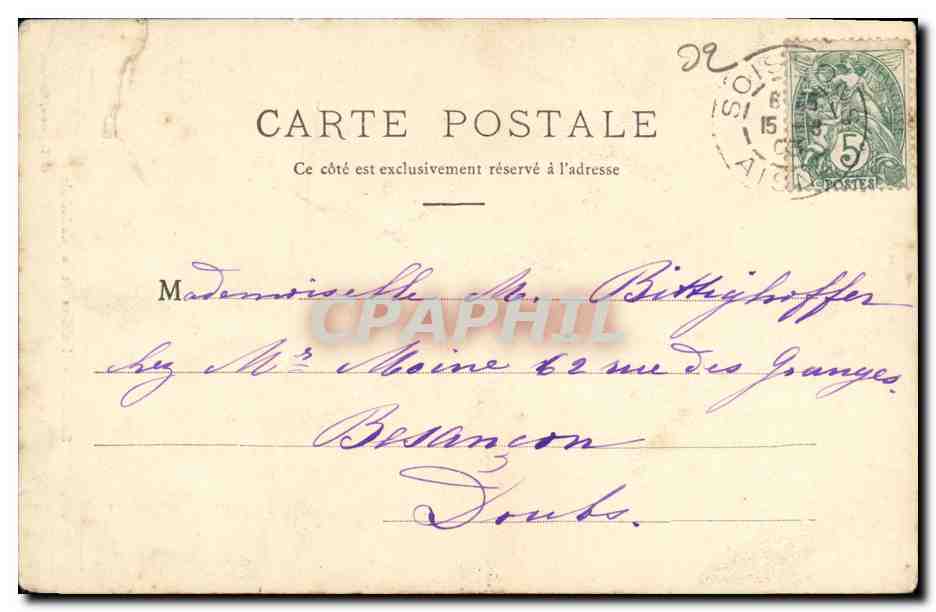 02
CARTE POSTALE
Ce côté est exclusivement réservé à l'adresse
5
POSTES
Mademoiselle M. Bittighoffer
chez Mr Moine 62 rue des Granges.
Besançon
Doubs.
CPAPHIL